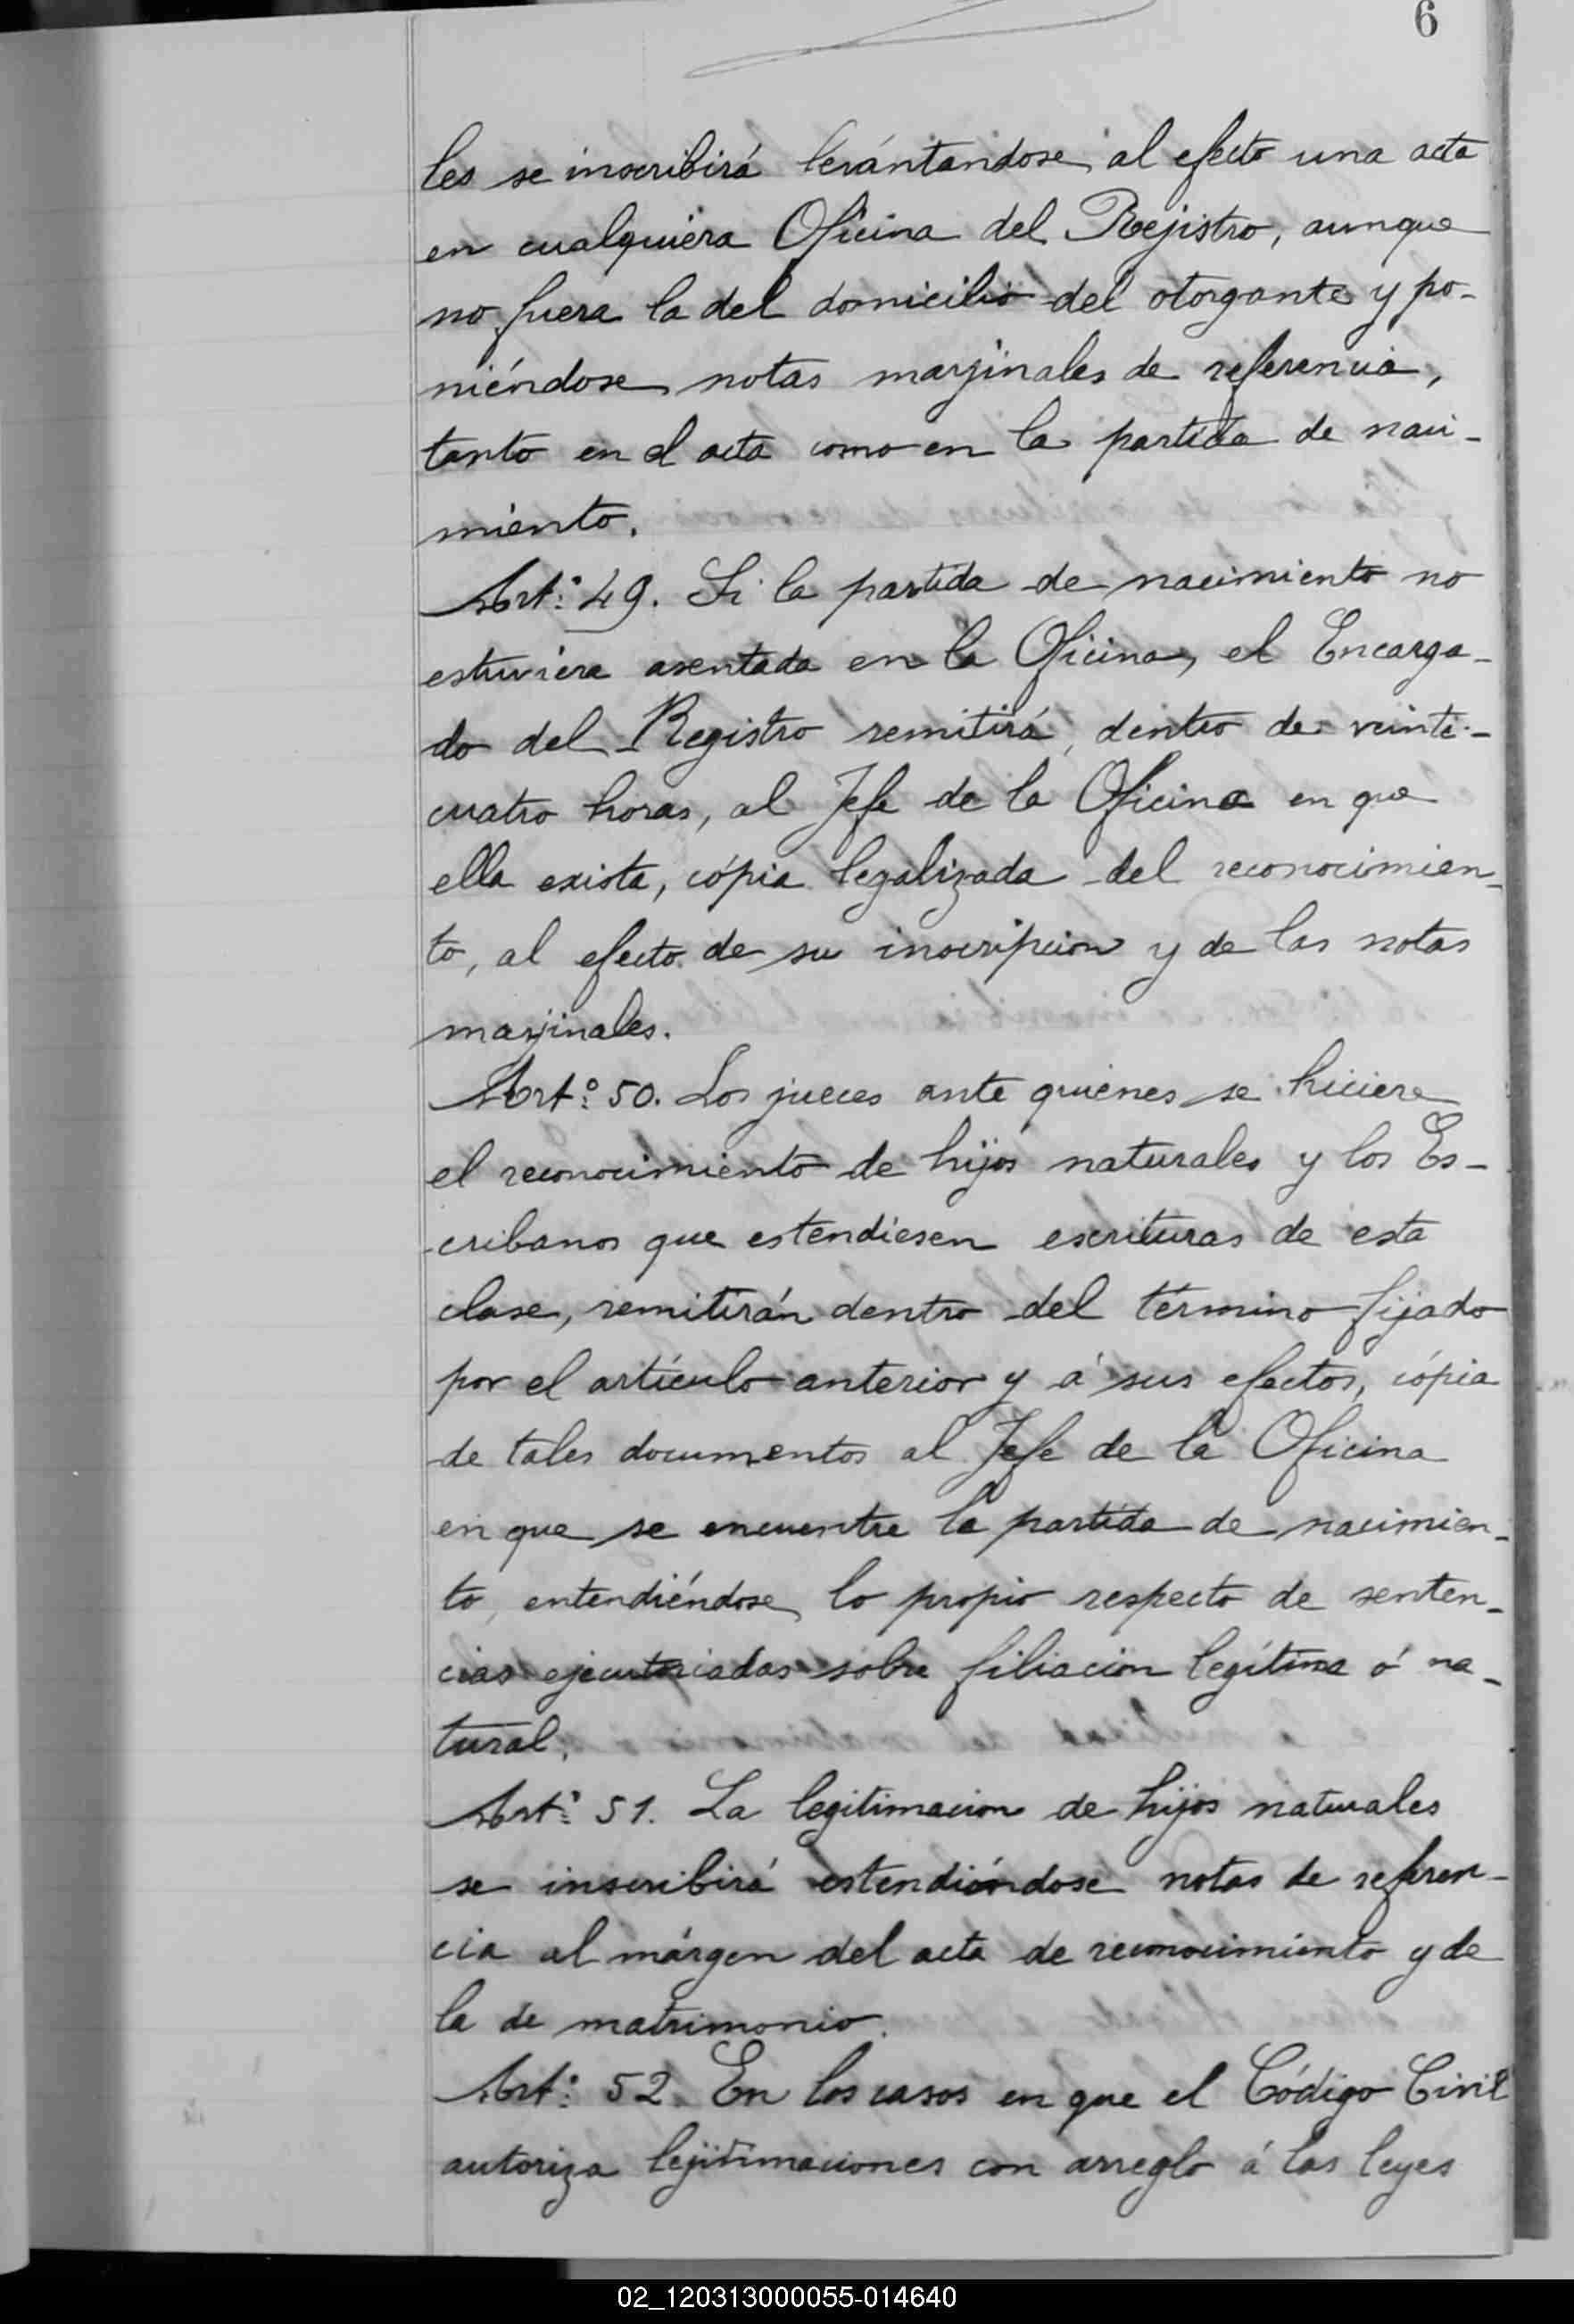 6
les se inscribirá levántandose al efecto una acta
en cualquiera Oficina del Rejistro, aunque
no fuera la del domicilio del otorgante y po-
niéndose notas marjinales de referencia,
tanto en el acta como en la partida de naci-
miento.
Artº 49. Si la partida de nacimiento no
estuviera asentada en la Oficina, el Encarga-
do del Registro remitirá, dentro de veinti-
cuatro horas, al Jefe de la Oficina en que
ella exista, cópia legalizada del reconocimien-
to, al efecto de su inscripcion y de las notas
marjinales.
Artº 50. Los jueces ante quienes se hiciere
el reconocimiento de hijos naturales y los Es-
cribanos que estendiesen escrituras de esta
clase, remitirán dentro del término fijado
por el artículo anterior y á sus efectos, cópia
de tales documentos al Jefe de la Oficina
en que se encuentre la partida de nacimien-
to, entendiéndose lo propio respecto de senten-
cias ejecutoriadas sobre filiacion legítima ó na-
tural.
Artº 51. La legitimacion de hijos naturales
se inscribirá estendiéndose notas de referen-
cia al márgen del acta de reconocimiento y de
la de matrimonio.
Artº 52. En los casos en que el Código Civil
autoriza lejitimaciones con arreglo á las leyes
02_120313000055-014640